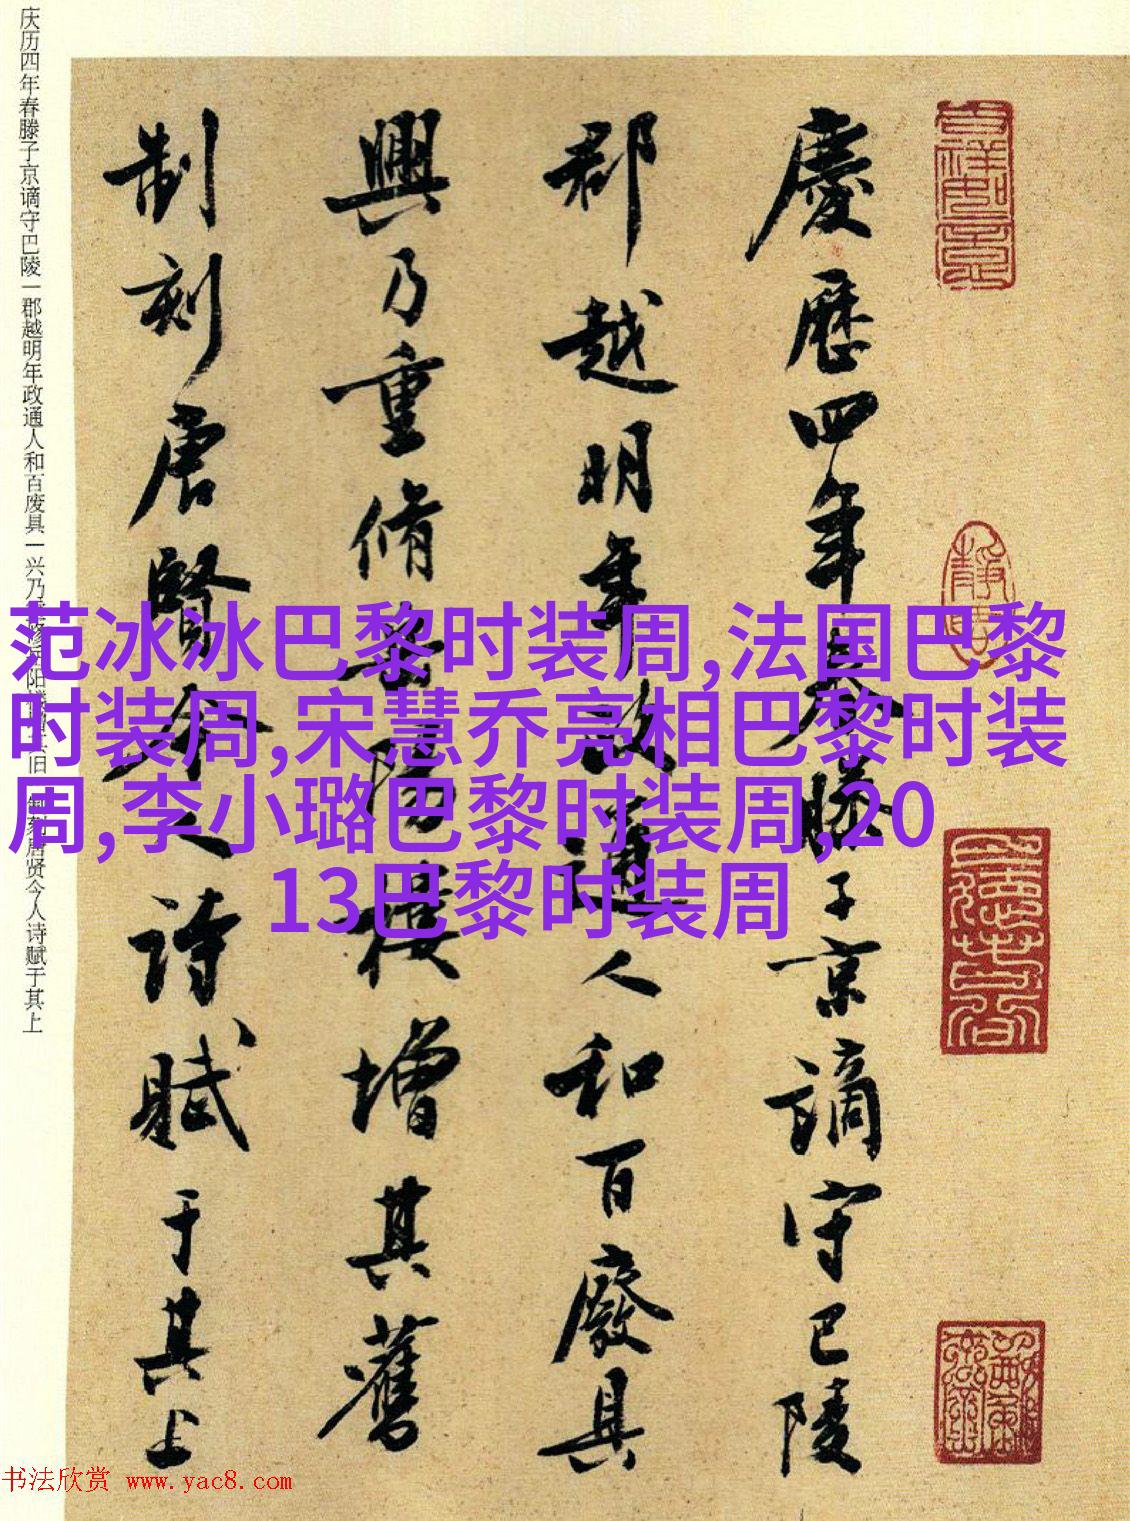 慶歷四年春滕子京謫守巴陵
郡越明年政通人和百廢具
興乃重修岳陽樓增其舊
制刻唐賢今人诗賦于其上
庆历四年春滕子京谪守巴陵一郡越明年政通人和百废具一兴乃重修岳阳楼增其旧一制刻唐贤今人诗赋于其上
范冰冰巴黎时装周,法国巴黎
时装周,宋慧乔亮相巴黎时装
周,李小璐巴黎时装周,20
13巴黎时装周
书法欣赏 www.yac8.com